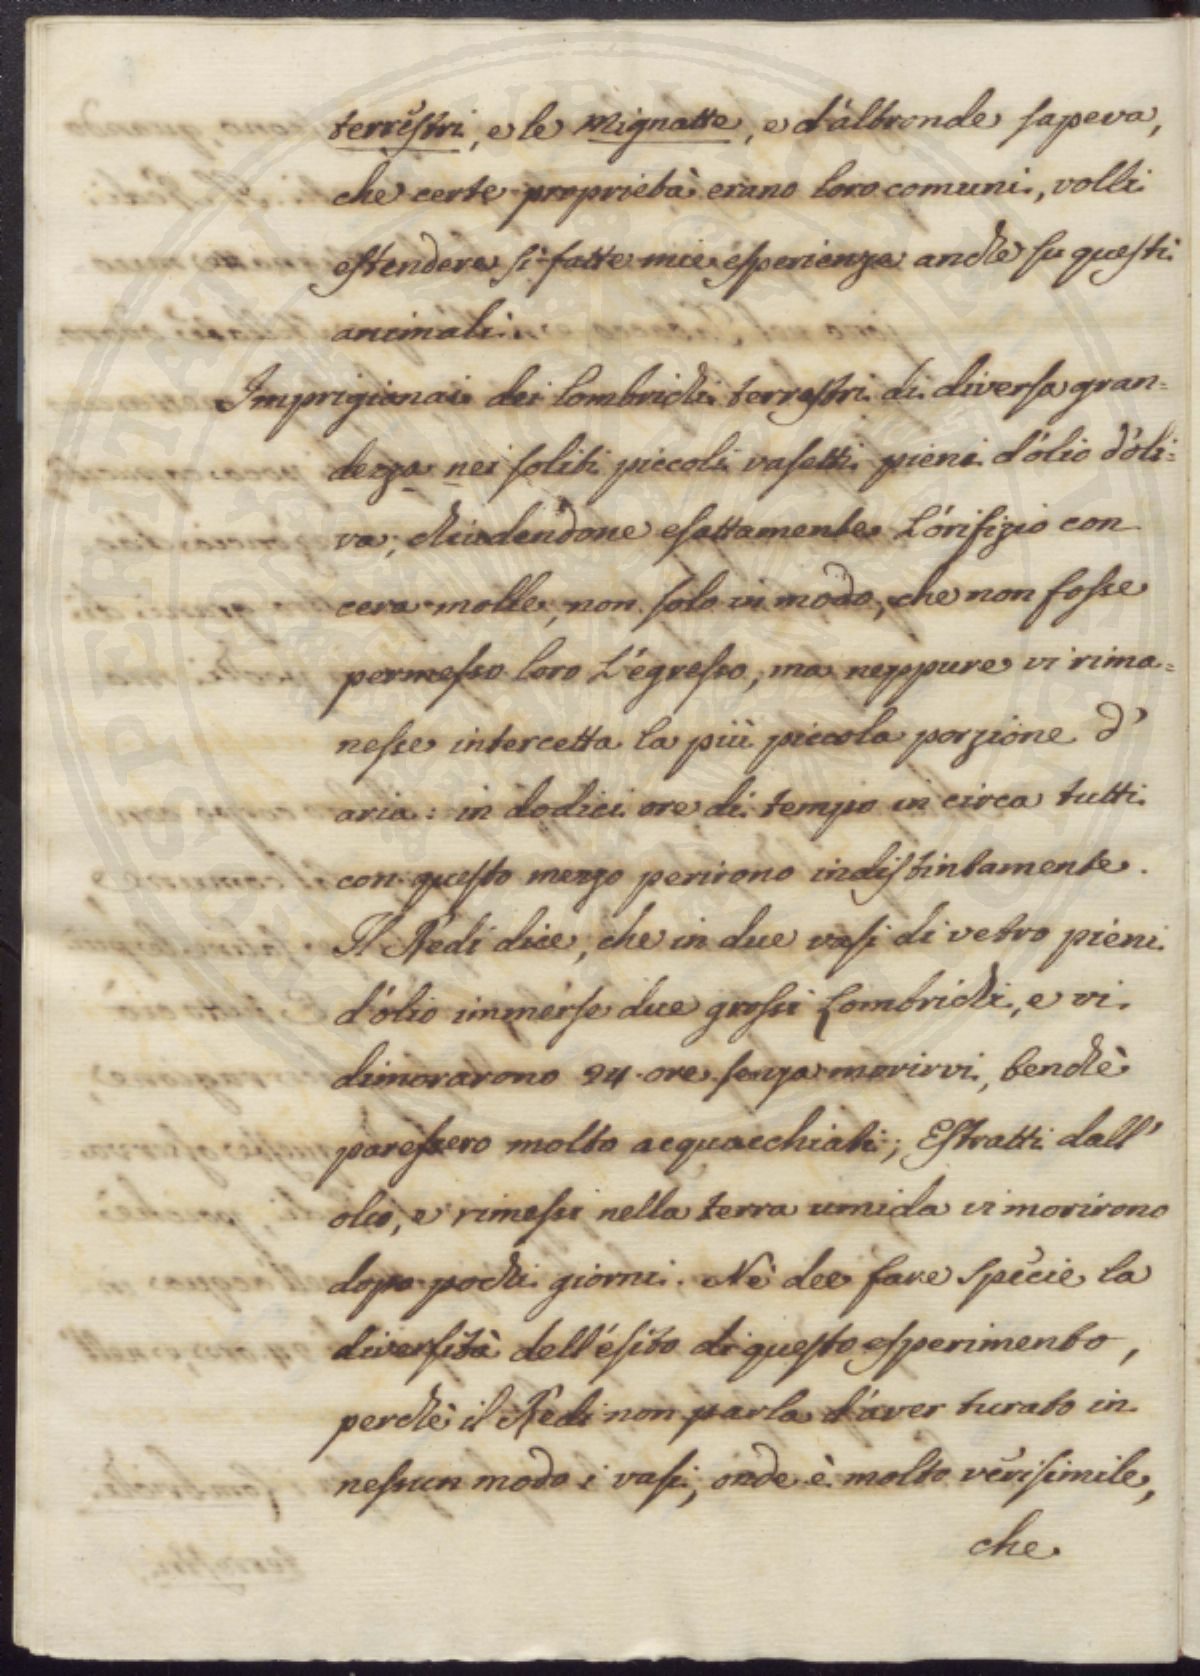 terrestri, e le Mignatte, e d'altronde sapeva,
che certe proprietà erano loro comuni, volli
estendere sì fatte mie esperienze anche su questi
animali.
Imprigionai dei Lombrichi terrestri di diversa gran=
dezza nei soliti piccoli vasetti pieni d'olio d'oli=
va, chiudendone esattamente l'orifizio con
cera molle, non solo in modo, che non fosse
permesso loro l'egresso, ma neppure vi rima=
nesse intercetta la più piccola porzione d'
aria: in dodici ore di tempo in circa tutti
con questo mezzo perirono indistintamente.
Il Redi dice, che in due vasi di vetro pieni
d'olio immerse due grossi Lombrichi, e vi
dimorarono 24 ore senza morirvi, benchè
paressero molto acquacchiati; Estratti dall'
olio, e rimessi nella terra umida vi morirono
dopo pochi giorni. Nè dee fare specie la
diversità dell'esito di questo esperimento,
perchè il Redi non parla d'aver turato in
nessun modo i vasi, onde è molto verisimile,
che